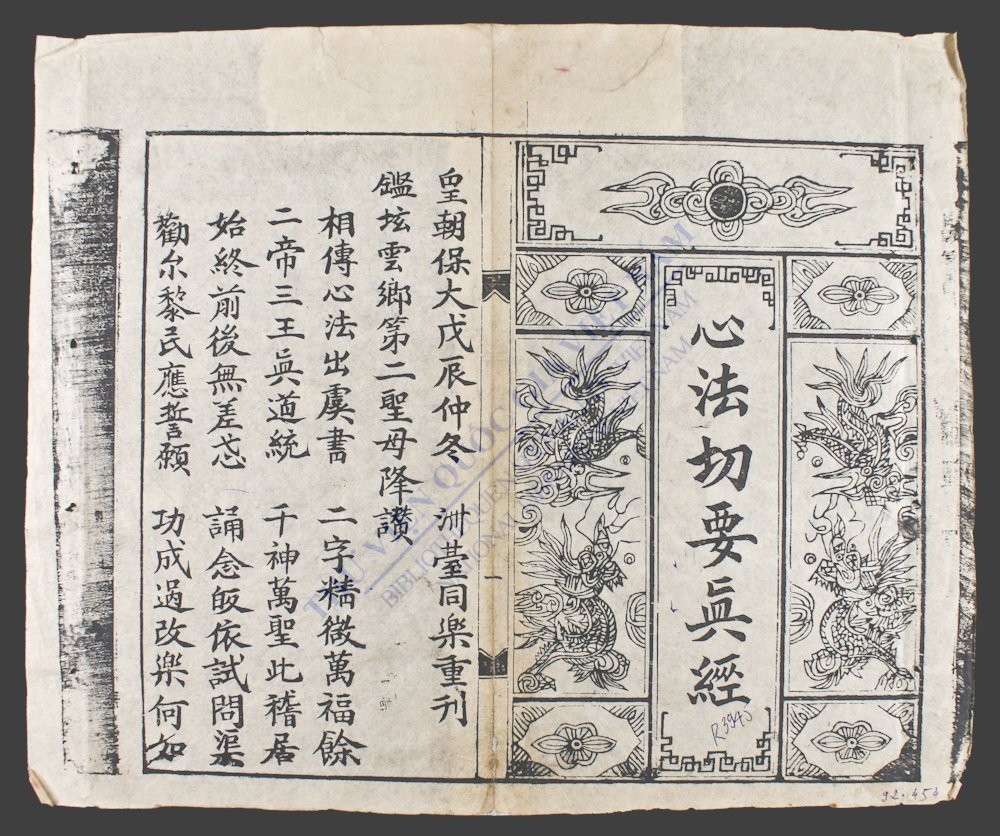 心法切要眞經
R3945
皇朝保大戊辰仲冬 洲臺同樂重刊
鑑坛雲鄉第二聖母降讃
相傳心法出虞書 二字精微萬福餘
二帝三王眞道統 千神萬聖此稽居
始終前後無差忒 誦念皈依試問渠
勸尒黎民應誓願 功成過改樂何如
一
THƯ VIỆN QUỐC GIA VIỆT NAM
92.454